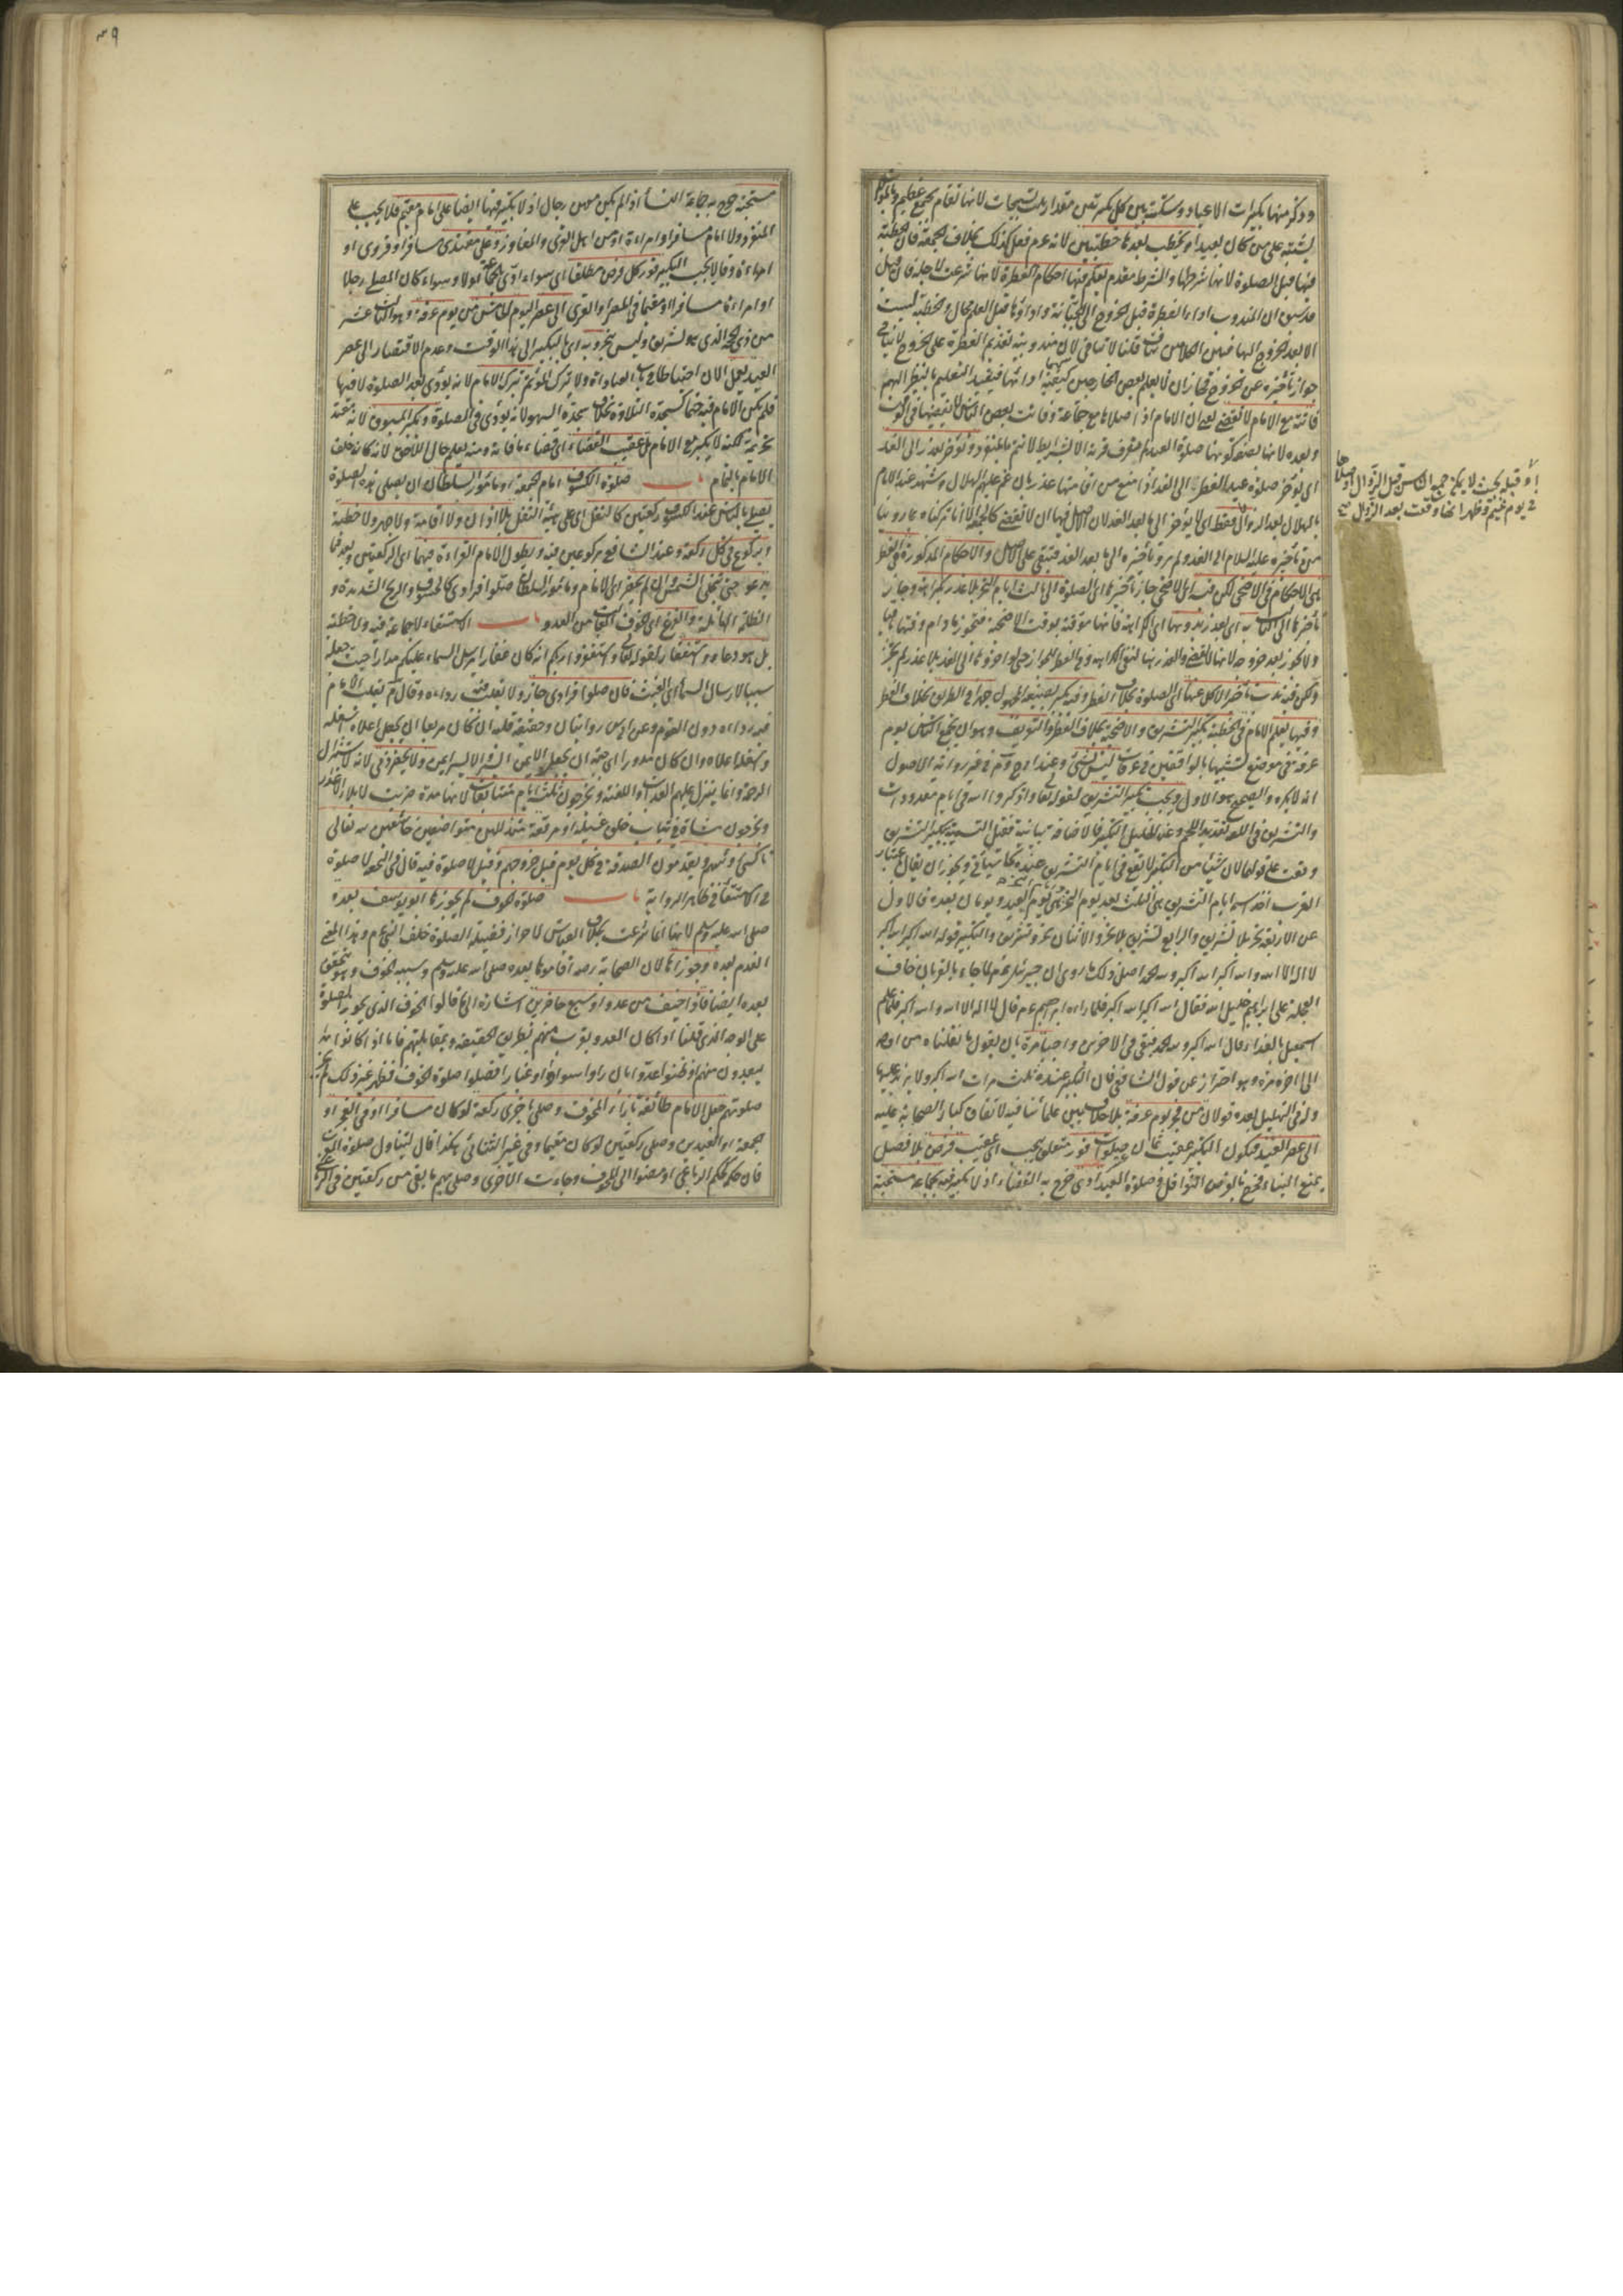 وذكر منها تكبيرات الاعياد وسكتة بين كل تكبيرتين مقدار ثلث تسبيحات لانها تقام بجمع عظيم وبالموالاة
يشتبه على من كان بعيدا ويخطب بعدها خطبتين لانه عم فعل كذلك بخلاف الجمعة فان الخطبة
فيها قبل الصلوة لانها شرطها والشرط مقدم يعلم فيها احكام الفطرة لانها شرعت لاجله فان قيل
قد سبق ان المندوب اداء الفطرة قبل الخروج الى الجبانة واداؤها قبل العلم محال والخطبة ليست
الا بعد الخروج اليها فبين الكلامين تناف قلنا لا تنافي لان مندوبية تقديم الفطرة على الخروج لا ينافي
جواز تأخيره عن الخروج فجاز ان لا يعلم بعض الخارجين كيفية ادائها فيفيد التعليم بالنظر اليهم
فائتة مع الامام لا تقضى يعني ان الامام اذا صلاها مع جماعة وفاتت بعض الناس لا يقضيها في الوقت
وبعده لانها بصفة كونها صلوة العيد لم تعرف قربة الا بشرايط لا تتم بالمنفرد وتؤخر بعذر الى الغد
اي يؤخر صلوة عيد الفطر الى الغد اذا منع من اقامتها عذر بان غم عليهم الهلال وشهد عند الامام
بالهلال بعد الزوال فقط اي لا يؤخر الى ما بعد الغد لان الاصل فيها ان لا تقضى كالجمعة الا انا تركناه بما روينا
من تأخيره عليه السلام الى الغد ولم يرو تأخيره الى ما بعد الغد فبقي على الاصل والاحكام المذكورة في الفطر
هي الاحكام في الاضحى لكن فيه اي الاضحى جاز تأخيرها اي الصلوة الى ثالث ايام النحر بلا عذر بكراهة وجاز
تأخيرها الى الثالث به اي بعذر بدونها اي الكراهة فانها موقتة بوقت الاضحية فتجوز ما دام وقتها باقيا
ولا تجوز بعد خروجه لانها لا تقضى والعذر هنا لنفي الكراهة وفي الفطر للجواز حتى لو اخروها الى الغد بلا عذر لم يجز
ولكن فيه ندب تأخير الاكل عنها اي الصلوة بخلاف الفطر وفيه يكبر بصيغة المجهول جهرا في الطريق بخلاف الفطر
وفيها يعلم الامام في الخطبة تكبير التشريق والاضحية بخلاف الفطر والتعريف وهو ان يجتمع الناس يوم
عرفة في موضع تشبيها بالواقفين في عرفات ليس بشئ وعند ابي ح وم في غير رواية الاصول
انه لا يكره والصحيح هو الاول ويجب تكبير التشريق لقوله تعالى واذكروا الله في ايام معدودات
والتشريق في اللغة تقديد اللحم وعن الخليل التكبير فالاضافة بيانية فقيل التسمية بتكبير التشريق
وقعت على قولهما لان شيئا من التكبير لا يقع في ايام التشريق عنده كما سيأتي ويجوز ان يقال باعتبار
القرب اخذ اسمه ايام التشريق هي الثلث بعد يوم النحر هي يوم العيد ويومان بعده فالاول
من الاربعة نحر بلا تشريق والرابع تشريق بلا نحر والاثنان نحر وتشريق والتكبير قوله الله اكبر الله اكبر
لا اله الا الله والله اكبر الله اكبر ولله الحمد اصل ذلك ما روي ان جبريل عم لما جاء بالقربان خاف
العجلة على ابراهيم خليل الله فقال الله اكبر الله اكبر فلما راه ابراهيم عم قال لا اله الا الله والله اكبر فلما علم
اسمعيل بالفداء قال الله اكبر ولله الحمد فبقي في الاخرين واجبا مرة بان يقول ما نقلناه من اوله
الى اخره مرة وهو احتراز عن قول الشافعي فان التكبير عنده ثلث مرات الله اكبر ولا يزيد عليها
وله في التهليل بعده قولان من فجر يوم عرفة بلا خلاف بين علمائنا فيه لاتفاق كبار الصحابة عليه
الى عصر العيد فيكون التكبير عقيب ثمان صلوات فور متعلق بيجب اي عقيب فرض بلا فصل
يمنع البناء فخرج بالفرض النوافل وصلوة العيد ادي خرج به القضاء اذ لا تكبير فيه بجماعة مستحبة
او قبله بحيث لا يمكن جمع الناس قبل الزوال او صلاها
في يوم غيم وظهر انها وقعت بعد الزوال
٣٩
مستحبة خرج به جماعة النساء اذا لم يكن معهن رجال اذ لا تكبير فيها ايضا على امام مقيم فلا يجب على
المنفرد ولا امام مسافر او امراة او من اهل القرى والمفاوز وعلى مقتدي مسافر او قروي او
امراة وقالا يجب التكبير فور كل فرض مطلقا اي سواء ادي بجماعة اولا وسواء كان المصلي رجلا
او امراة مسافرا او مقيما في المصر او القرى الى عصر اليوم الخامس من يوم عرفة وهو الثالث عشر
من ذي الحجة الذي هو تشريق وليس بنحر وبه اي بالتكبير الى هذا الوقت وعدم الاقتصار الى عصر
العيد يعمل الان احتياطا في باب العبادات ولا يترك المؤتم بترك الامام لانه يؤدى بعد الصلوة لا فيها
فلم يكن الامام فيه حتما كسجدة التلاوة بخلاف سجدة السهو لانه يؤدى في الصلوة ويكبر المسبوق لانه مقتد
تحريمة لكنه لا يكبر مع الامام بل عقيب القضاء اي قضاء ما فاته ومنه يعلم حال اللاحق لانه كانه خلف
الامام بالتمام باب صلوة الكسوف امام الجمعة او مأمور السلطان ان يصلي هذه الصلوة
يصلي بالناس عند الكسوف ركعتين كالنفل اي على هيئة النفل بلا اذان ولا اقامة ولا جهر ولا خطبة
وبركوع في كل ركعة وعند الشافعي بركوعين فيه ويطول الامام القراءة فيهما اي الركعتين وبعدهما
يدعو حتى تنجلي الشمس وان لم يحضر اي الامام ومأمور السلطان صلوا فرادى كالخسوف والريح الشديدة و
الظلمة الهائلة والفزع اي الخوف الغالب من العدو باب الاستسقاء لا جماعة فيه ولا خطبة
بل هو دعاء واستغفار لقوله تعالى واستغفروا ربكم انه كان غفارا يرسل السماء عليكم مدرارا حيث جعله
سببا لارسال السماء اي الغيث فان صلوا فرادى جاز ولا يقلب فيه رداءه وقال م يقلب الامام
فيه رداءه دون القوم وعن ابي س روايتان وصفته قلبه ان كان مربعا ان يجعل اعلاه اسفله
واسفله اعلاه وان كان مدورا اي جبة ان يجعل الايمن الايسر والايسر ايمن ولا يحضر ذمي لانه لاستنزال
الرحمة وانما ينزل عليهم العذاب واللعنة ويخرجون ثلثة ايام متتابعات لانها مدة ضربت لابلاء الاعذار
ويخرجون مشاة في ثياب خلق غسيلة او مرقعة متذللين متواضعين خاشعين لله تعالى
ناكسي رؤسهم ويقدمون الصدقة في كل يوم قبل خروجهم وقيل لا صلوة فيه قال في التحفة لا صلوة
في الاستسقاء في ظاهر الرواية باب صلوة الخوف لم يجوزها ابو يوسف بعده
صلى الله عليه وسلم لانها انما شرعت بخلاف القياس لاحراز فضيلة الصلوة خلف النبي عم وهذا المعنى
انعدم بعده وجوزاها لان الصحابة رضه اقاموها بعده صلى الله عليه وسلم وسببه الخوف وهو يتحقق
بعده ايضا فاذا خيف من عدو او سبع حاضرين اشارة الى ما قالوا الخوف الذي يجوز الصلوة
على الوجه الذي قلنا اذا كان العدو بقرب منهم بطريق الحقيقة وبمقابلتهم فاما اذا كانوا
يبعدون منهم او ظنوا عدوا بان راوا سوادا او غبارا فصلوا صلوة الخوف فظهر غير ذلك لم
صلوتهم جعل الامام طائفة بازاء المخوف وصلى باخرى ركعة لو كان مسافرا او في الفجر او
الجمعة او العيدين وصلى ركعتين لو كان مقيما وفي غير الثنائي هكذا قال ليتناول صلوة المغرب
فان حكمه حكم الرباعي او مضوا الى المخوف وجاءت الاخرى وصلى بهم ما بقي من ركعتين في الرباعي